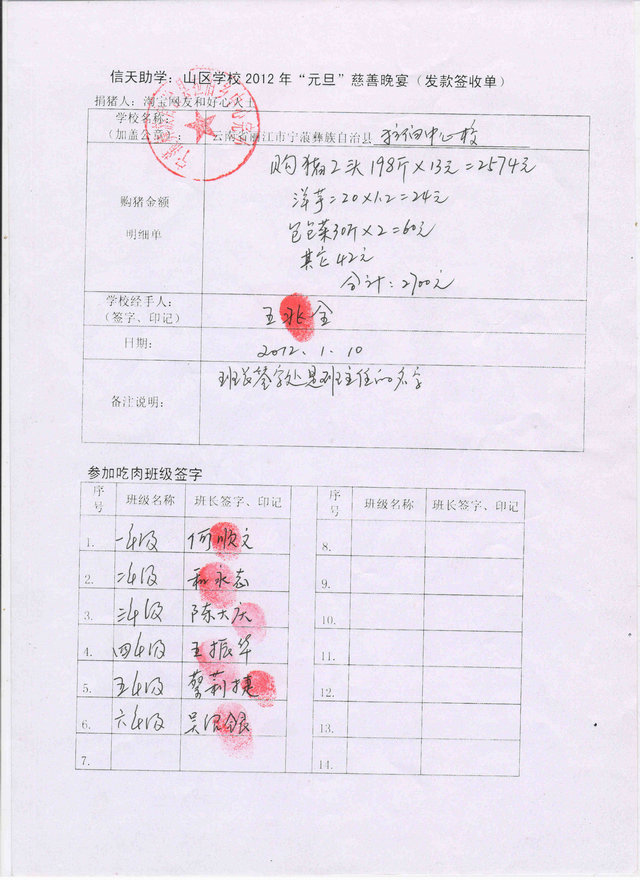 信天助学：山区学校2012年“元旦”慈善晚宴（发款签收单）
捐猪人：淘宝网友和好心人士
学校名称：
（加盖公章）：云南省丽江市宁蒗彝族自治县 中心校
购猪金额
明细单
购猪2头198斤×13元=2574元
洋芋=20×1.2=24元
包包菜30斤×2=60元
其它42元
合计：2700元
学校经手人：
（签字、印记）
王兆全
日期：
2012.1.10
备注说明：
班长签字处是班主任的名字
参加吃肉班级签字
序号 班级名称 班长签字、印记 序号 班级名称 班长签字、印记
1. 一年级 何顺文 8.
2. 二年级 和永志 9.
3. 三年级 陈大庆 10.
4. 四年级 王振华 11.
5. 五年级 蔡莉捷 12.
6. 六年级 吴银 13.
7. 14.